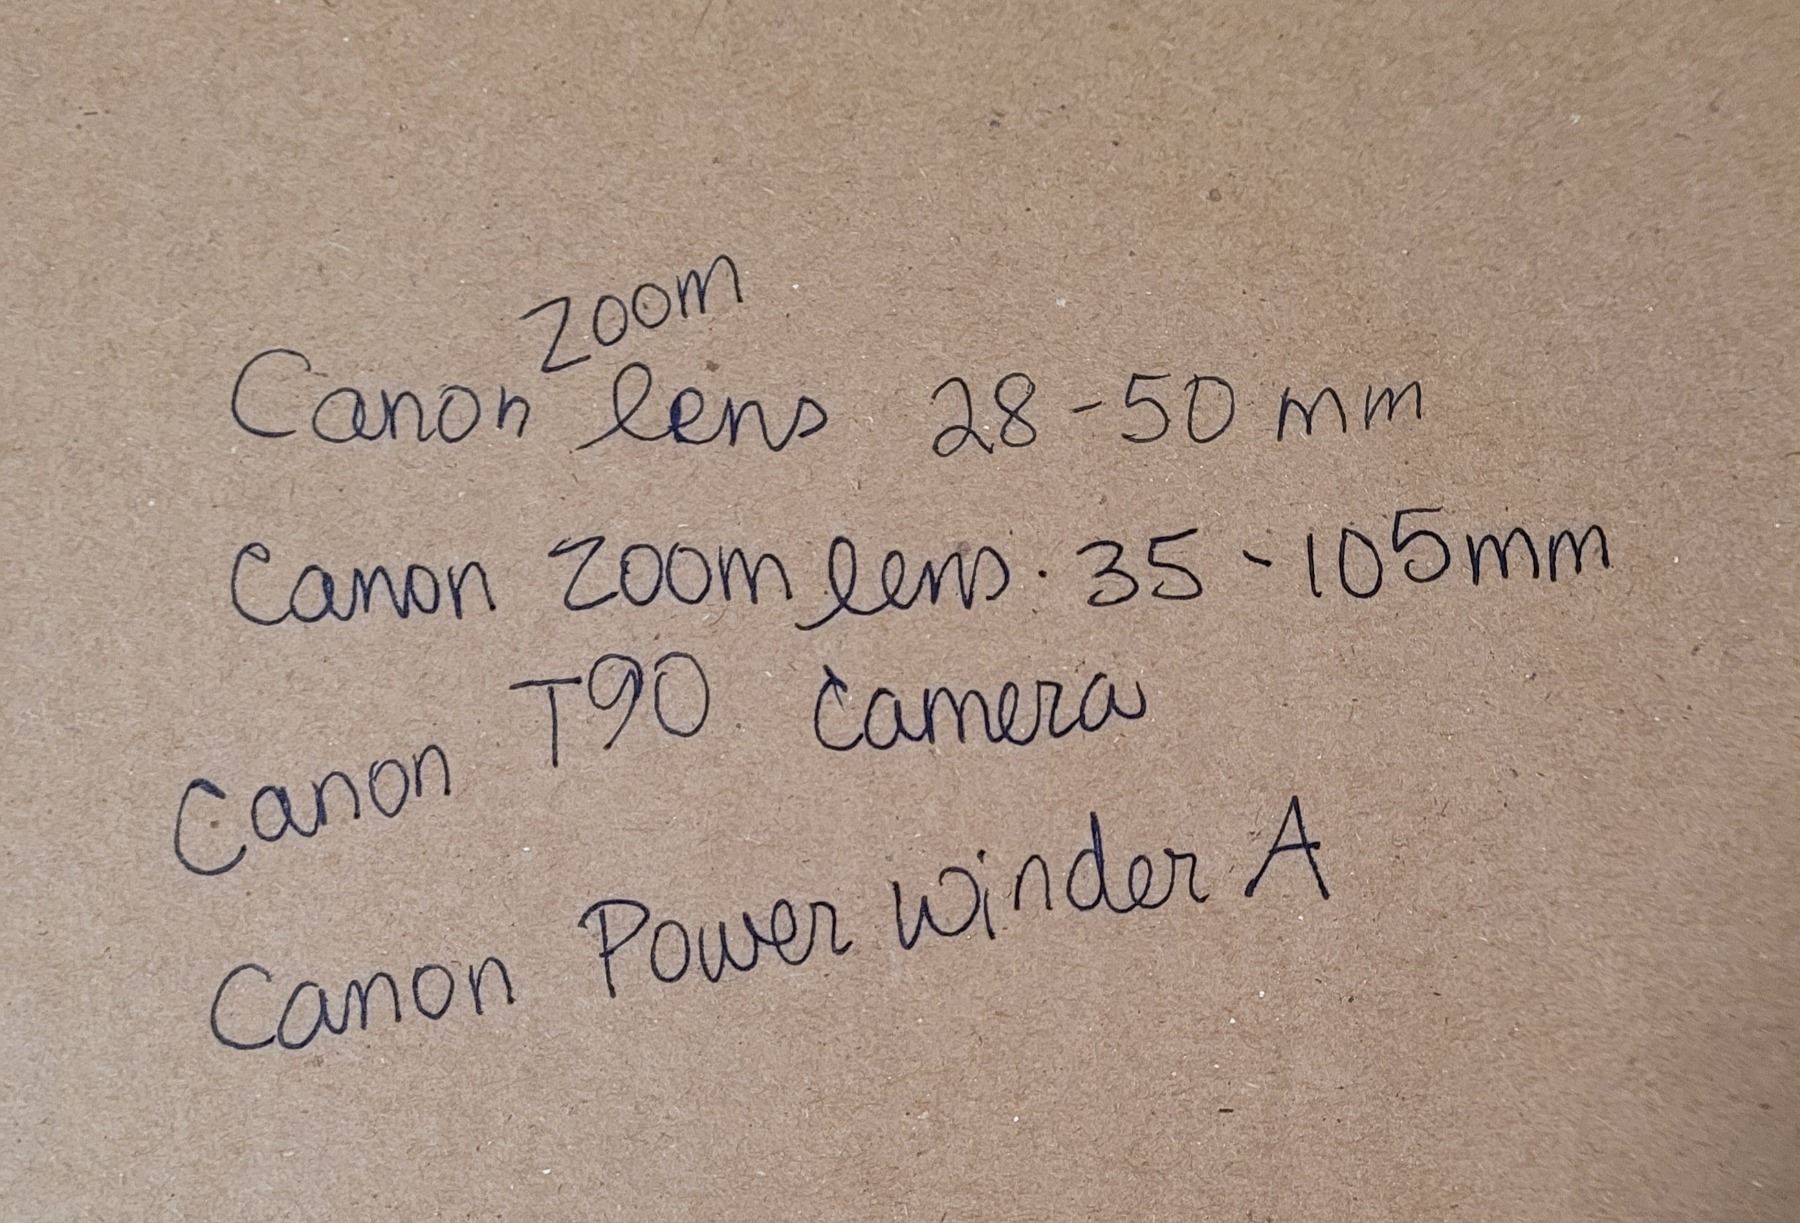 Canon zoom lens 28-50 mm
Canon zoom lens. 35-105mm
Canon T90 Camera
Canon Power Winder A